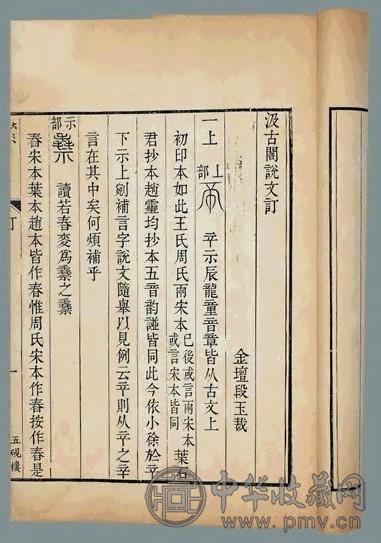 汲古閣說文訂
金壇段玉裁
一上
上部 䇂示辰龍童音章皆从古文上
初印本如此王氏周氏兩宋本已後或言兩宋本或言宋本皆同葉石
君抄本趙靈均抄本五音韵譜皆同此今依小徐於䇂
下示上剜補言字說文隨舉以見例云䇂則从䇂之䇂
言在其中矣何煩補乎
示部 讀若春麥爲之
春宋本葉本趙本皆作春惟周氏宋本作舂按作春是
訂
一
五硯樓
中华收藏网
www.pmv.cn